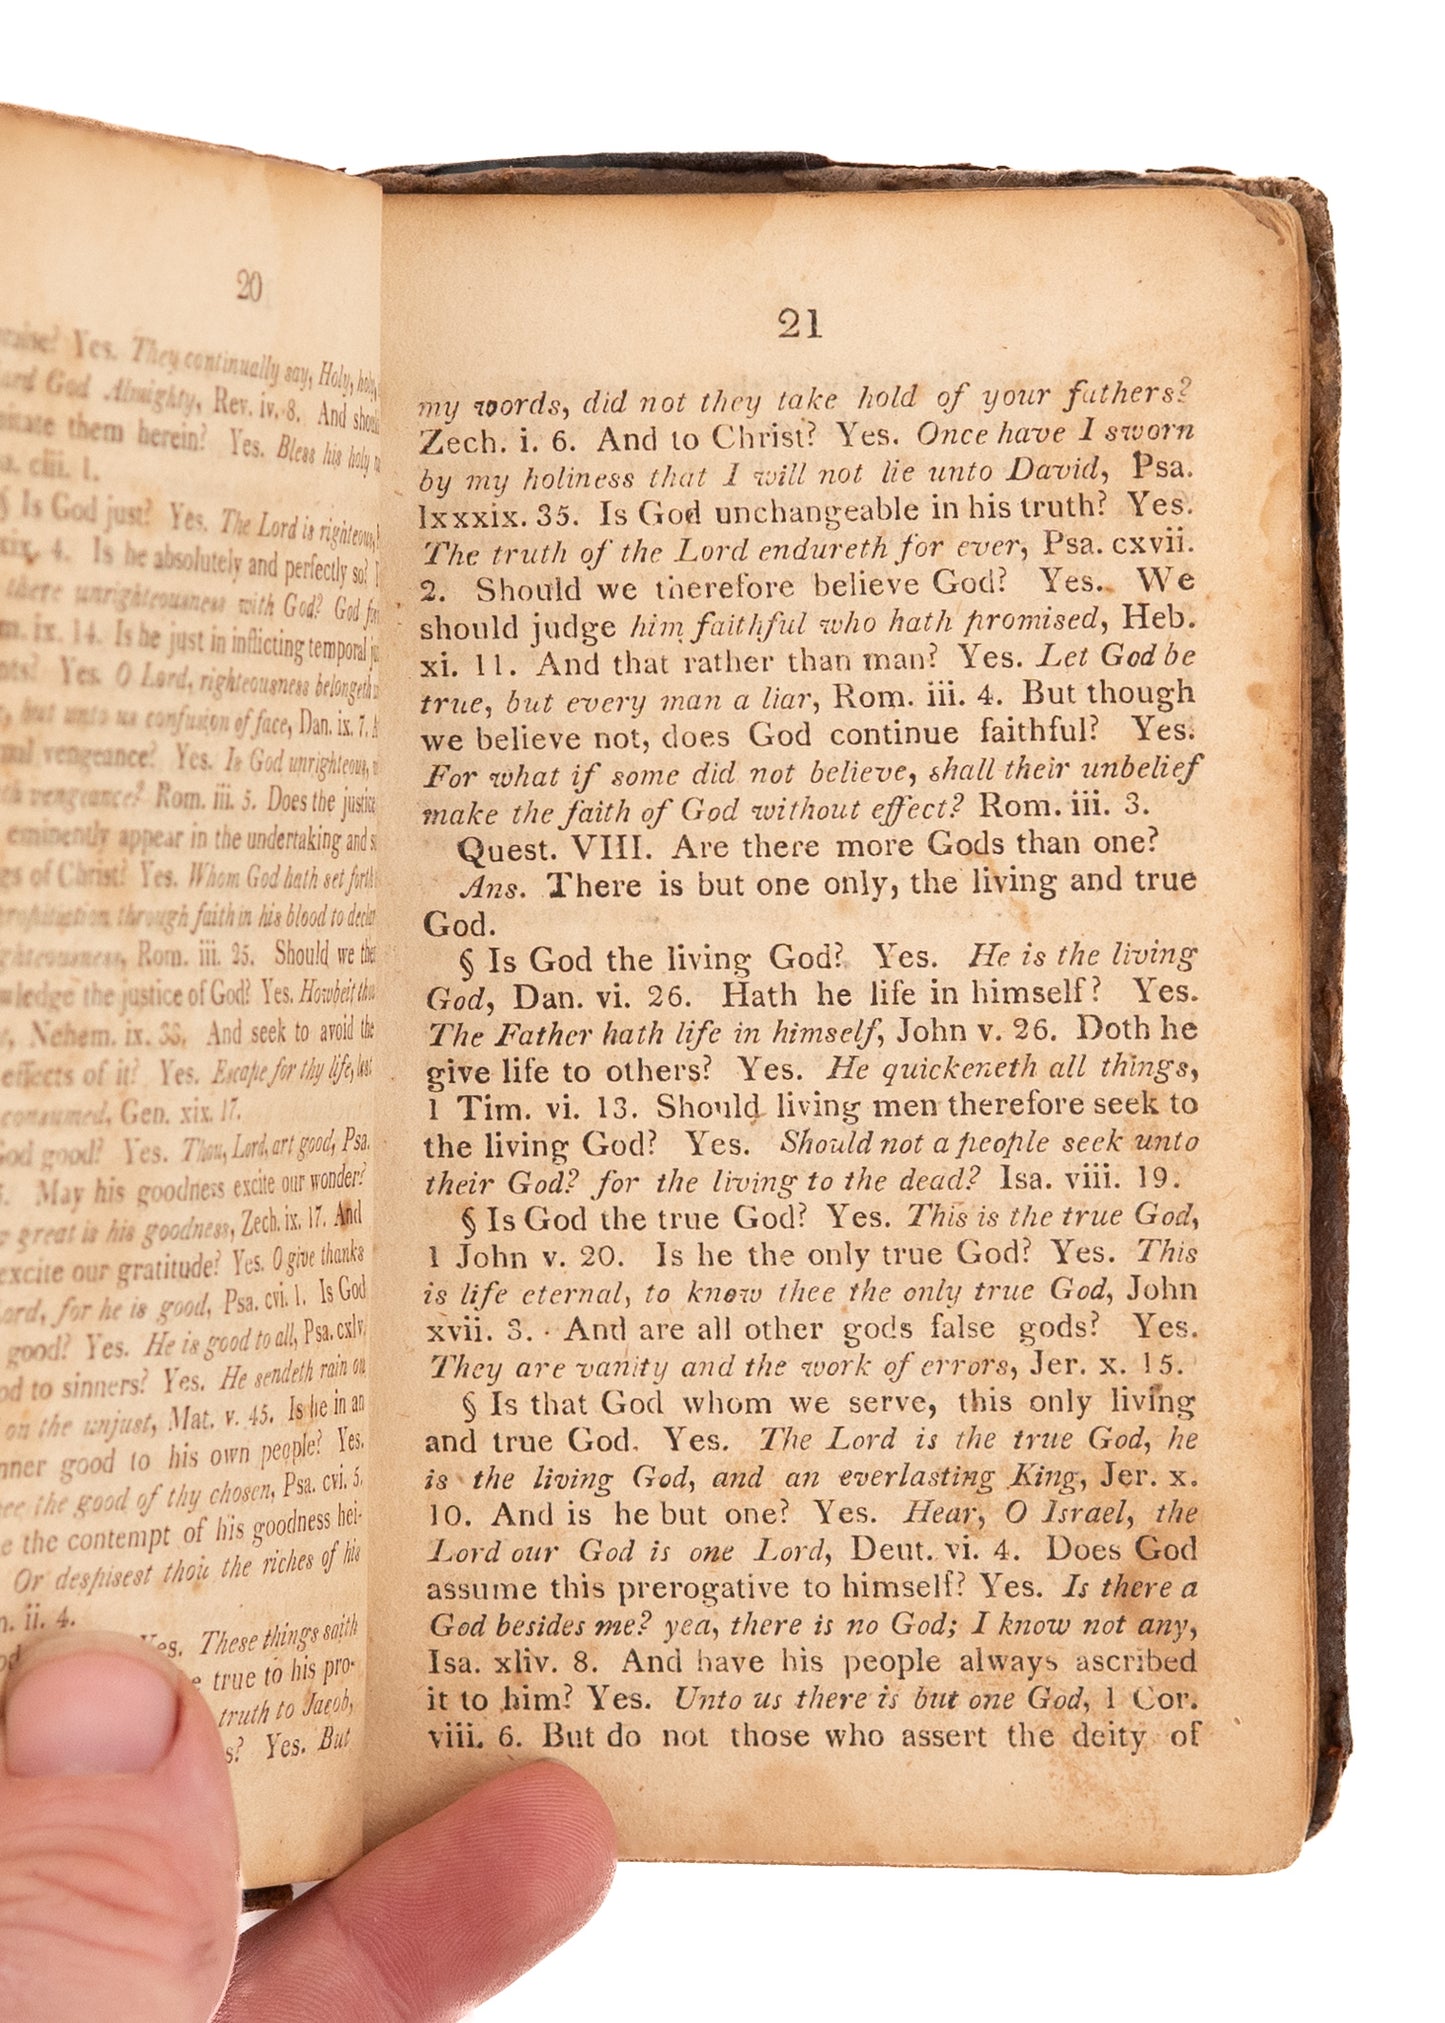 20
Yes. They continually say, Holy, holy,
God Almighty, Rev. iv. 8. And
them herein? Yes. Bless his holy
ciii. 1.
§ Is God just? Yes. The Lord is righteous,
4. Is he absolutely and perfectly so?
there unrighteousness with God? God
ix. 14. Is he just in inflicting temporal
Yes. O Lord, righteousness belongeth
but unto us confusion of face, Dan. ix. 7.
vengeance? Yes. Is God unrighteous,
vengeance? Rom. iii. 5. Does the justice
eminently appear in the undertaking and
of Christ? Yes. Whom God hath set forth
propitiation through faith in his blood to
Rom. iii. 25. Should we
the justice of God? Yes. Howbeit
Nehem. ix. 33. And seek to avoid the
effects of it? Yes. Escape for thy life, lest
consumed, Gen. xix. 17.
God good? Yes. Thou, Lord, art good, Psa.
May his goodness excite our wonder?
great is his goodness, Zech. ix. 17. And
excite our gratitude? Yes. O give thanks
for he is good, Psa. cvi. 1. Is God
good? Yes. He is good to all, Psa. cxlv.
to sinners? Yes. He sendeth rain on
on the unjust, Mat. v. 45. Is he in an
good to his own people? Yes.
the good of thy chosen, Psa. cvi. 5.
the contempt of his goodness hei-
Or despisest thou the riches of his
ii. 4.
Yes. These things saith
true to his pro-
truth to Jacob,
Yes. But
21
my words, did not they take hold of your fathers?
Zech. i. 6. And to Christ? Yes. Once have I sworn
by my holiness that I will not lie unto David, Psa.
lxxxix. 35. Is God unchangeable in his truth? Yes.
The truth of the Lord endureth for ever, Psa. cxvii.
2. Should we therefore believe God? Yes. We
should judge him faithful who hath promised, Heb.
xi. 11. And that rather than man? Yes. Let God be
true, but every man a liar, Rom. iii. 4. But though
we believe not, does God continue faithful? Yes.
For what if some did not believe, shall their unbelief
make the faith of God without effect? Rom. iii. 3.
Quest. VIII. Are there more Gods than one?
Ans. There is but one only, the living and true
God.
§ Is God the living God? Yes. He is the living
God, Dan. vi. 26. Hath he life in himself? Yes.
The Father hath life in himself, John v. 26. Doth he
give life to others? Yes. He quickeneth all things,
1 Tim. vi. 13. Should living men therefore seek to
the living God? Yes. Should not a people seek unto
their God? for the living to the dead? Isa. viii. 19.
§ Is God the true God? Yes. This is the true God,
1 John v. 20. Is he the only true God? Yes. This
is life eternal, to know thee the only true God, John
xvii. 3. And are all other gods false gods? Yes.
They are vanity and the work of errors, Jer. x. 15.
§ Is that God whom we serve, this only living
and true God. Yes. The Lord is the true God, he
is the living God, and an everlasting King, Jer. x.
10. And is he but one? Yes. Hear, O Israel, the
Lord our God is one Lord, Deut. vi. 4. Does God
assume this prerogative to himself? Yes. Is there a
God besides me? yea, there is no God; I know not any,
Isa. xliv. 8. And have his people always ascribed
it to him? Yes. Unto us there is but one God, 1 Cor.
viii. 6. But do not those who assert the deity of